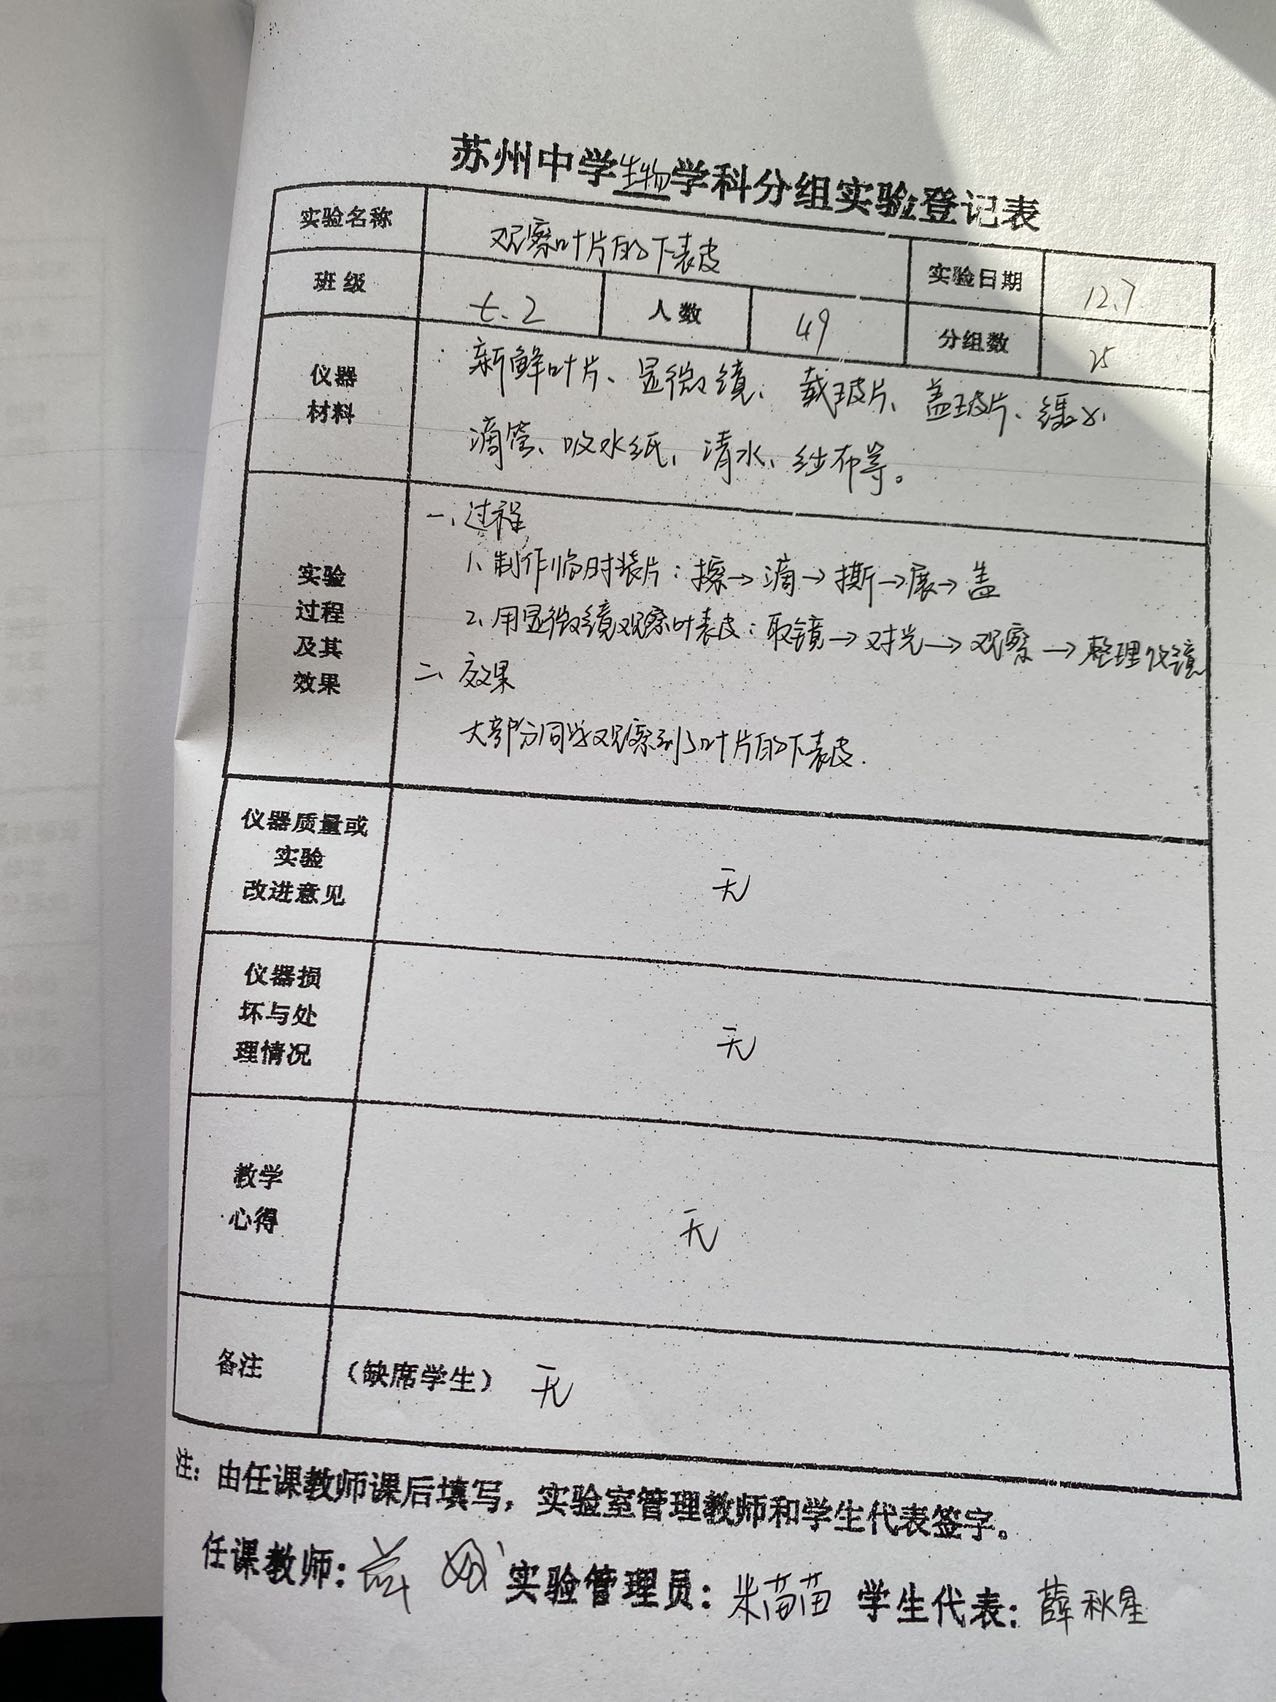 苏州中学生物学科分组实验登记表
实验名称 观察叶片的下表皮 实验日期 12.7
班级 七.2 人数 49 分组数 25
仪器
材料
新鲜叶片、显微镜、载玻片、盖玻片、镊子、
滴管、吸水纸、清水、纱布等。
实验
过程
及其
效果
一、过程
1、制作临时装片：擦→滴→撕→展→盖
2、用显微镜观察叶表皮：取镜→对光→观察→整理收镜
二、效果
大部分同学观察到了叶片的下表皮.
仪器质量或
实验
改进意见
无
仪器损
坏与处
理情况
无
教学
心得
无
备注 （缺席学生） 无
注：由任课教师课后填写，实验室管理教师和学生代表签字。
任课教师： 实验管理员：米苗苗 学生代表：薛秋星